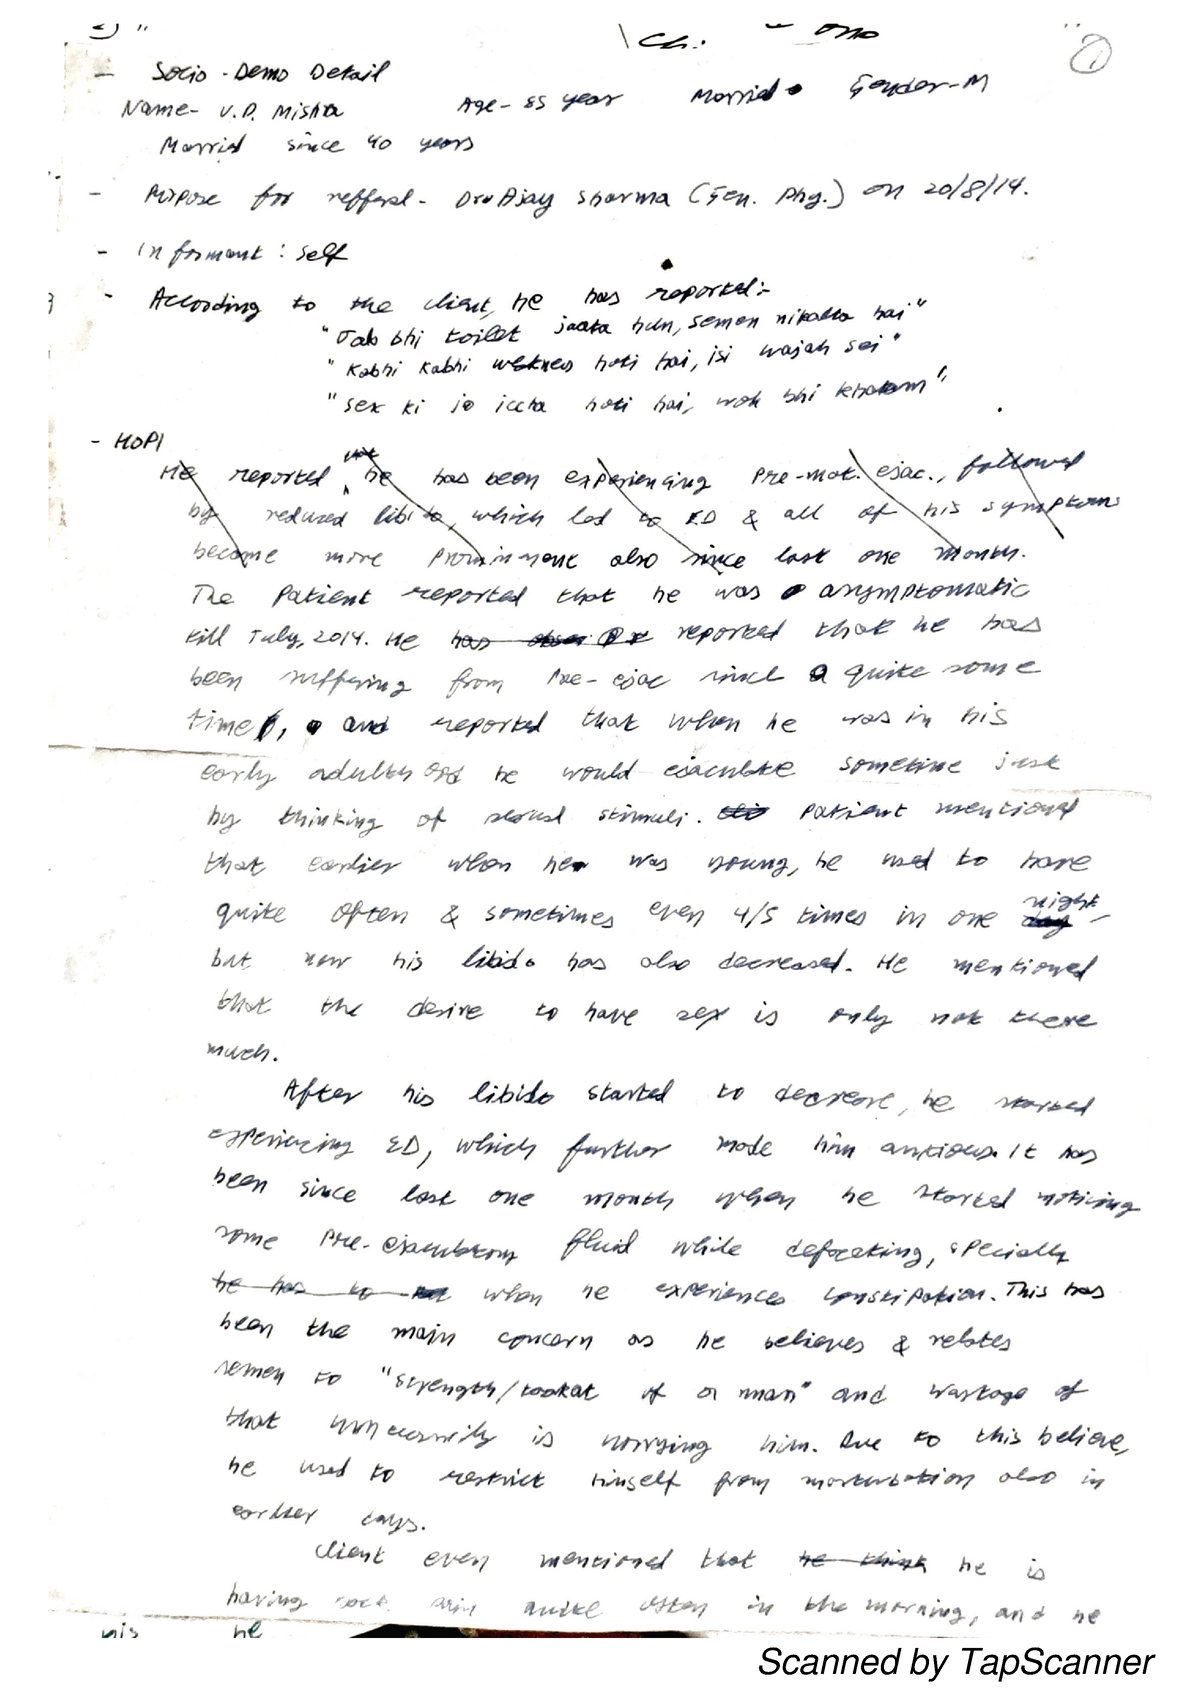 - Socio-Demo Detail
Name- V.D. Mishra Age- 55 year Married Gender-M
Married since 40 years
- Purpose for refferal- Dr. Ajay Sharma (Gen. Phy.) on 20/8/14.
- Informant : Self
- According to the client, he has reported:-
"Jab bhi toilet jaata hun, semen nikalta hai"
"Kabhi Kabhi weknes hoti hai, isi wajah sei"
"Sex ki jo iccha hoti hai, woh bhi khatam"
- HOPI
He reported that he has been experiencing Pre-mat. ejac., followed
by reduced libido, which led to ED & all of his symptoms
become more prominent also since last one month.
The Patient reported that he was asymptomatic
till July, 2014. He has reported that he has
been suffering from Pre-ejac since a quite some
time, and reported that when he was in his
early adulthood he would ejaculate sometime just
by thinking of sexual stimuli. Patient mentioned
that earlier when he was young, he used to have
quite often & sometimes even 4/5 times in one night
day
but now his libido has also decreased. He mentioned
that the desire to have sex is only not there
much.
After his libido started to decrease, he started
experiencing ED, which further made him anxious. It has
been since last one month when he started noticing
some Pre-ejaculatory fluid while defecating, specially
he has to when he experiences constipation. This has
been the main concern as he believes & relates
semen to "strength/taakat of a man" and wastage of
that unnecessarily is worrying him. Due to this believe,
he used to restrict himself from masturbation also in
earlier days.
Client even mentioned that he think he is
having pain quite often in the morning, and he
his he
Scanned by TapScanner